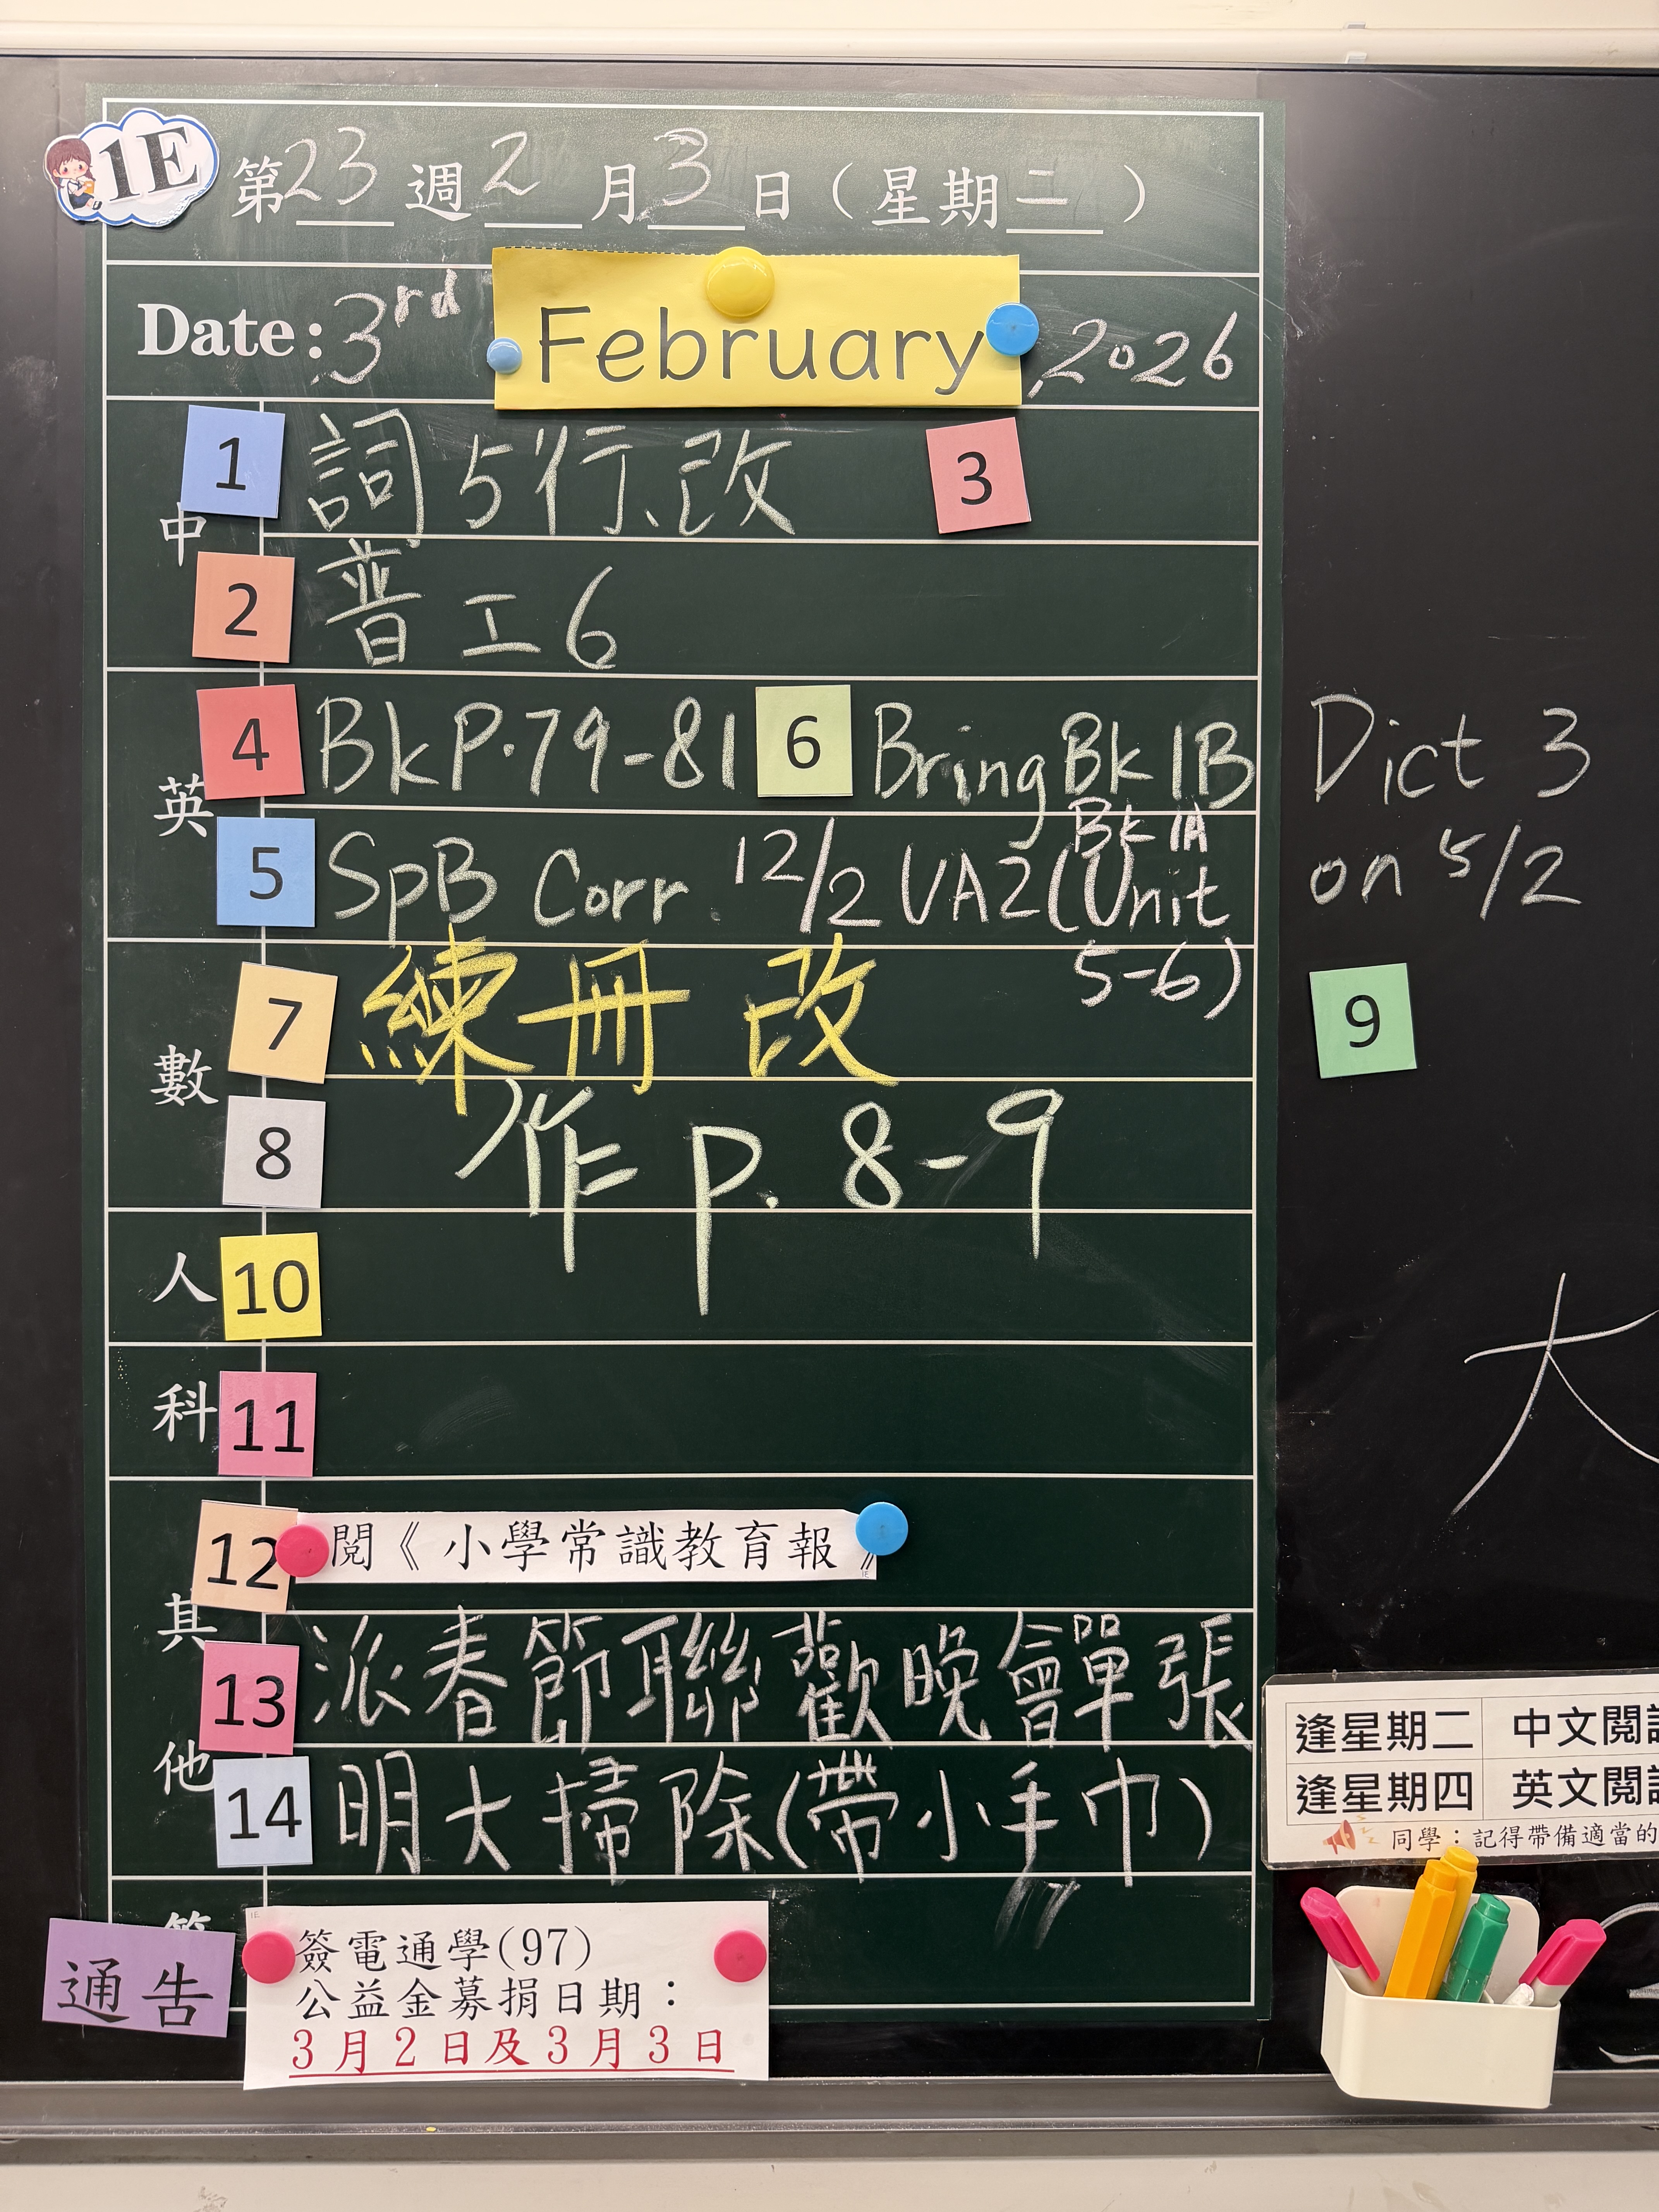 1E
第23週2月3日（星期二）
Date: 3rd February, 2026
中
1 詞5行、改 3
2 普工6
英
4 Bk P.79-81 6 Bring Bk 1B
Bk 1A
5 SpB Corr 12/2 UA2 (Unit
5-6)
Dict 3
on 5/2
數
7 練冊 改
9
8 作 p. 8-9
人 10
科 11
大
其他
12 閱《小學常識教育報》
13 派春節聯歡晚會單張
14 明大掃除(帶小手巾)
逢星期二 中文閱
逢星期四 英文閱
同學：記得帶備適當的
通告
簽電通學(97)
公益金募捐日期：
3月2日及3月3日